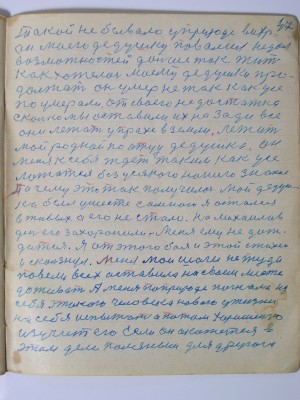 Такой не бывало у природе в ихр
он моего дедушку повалил недал
возможностей дольше так жит
как хотелос моему дедушки про-
должат он умер не так как усе
поумерали от своего недостатка
сколко мы оставили их на Зади все
они лежат у прахе в земли. Лежит
мой родной по отцу дедушко, он
меня к себя ждет таким как усе
ложатся без усякого нашего знание
почему это так получилос мой дедуш-
ко был умести самною я остался
в живых а его не стало. На михайлов
ден его захоронили. Меня ему не дож-
датся. Я от этого боя и этой стихеи
ускользнул. Меня мои шаги не туда
повели всех оставила на своем месте
доживат А меня природе погнала на
себя этакого человека нового у жизни
на себя испытат а потом хорошенько
изучит его Если он окажется в
этом деле полезным для другого